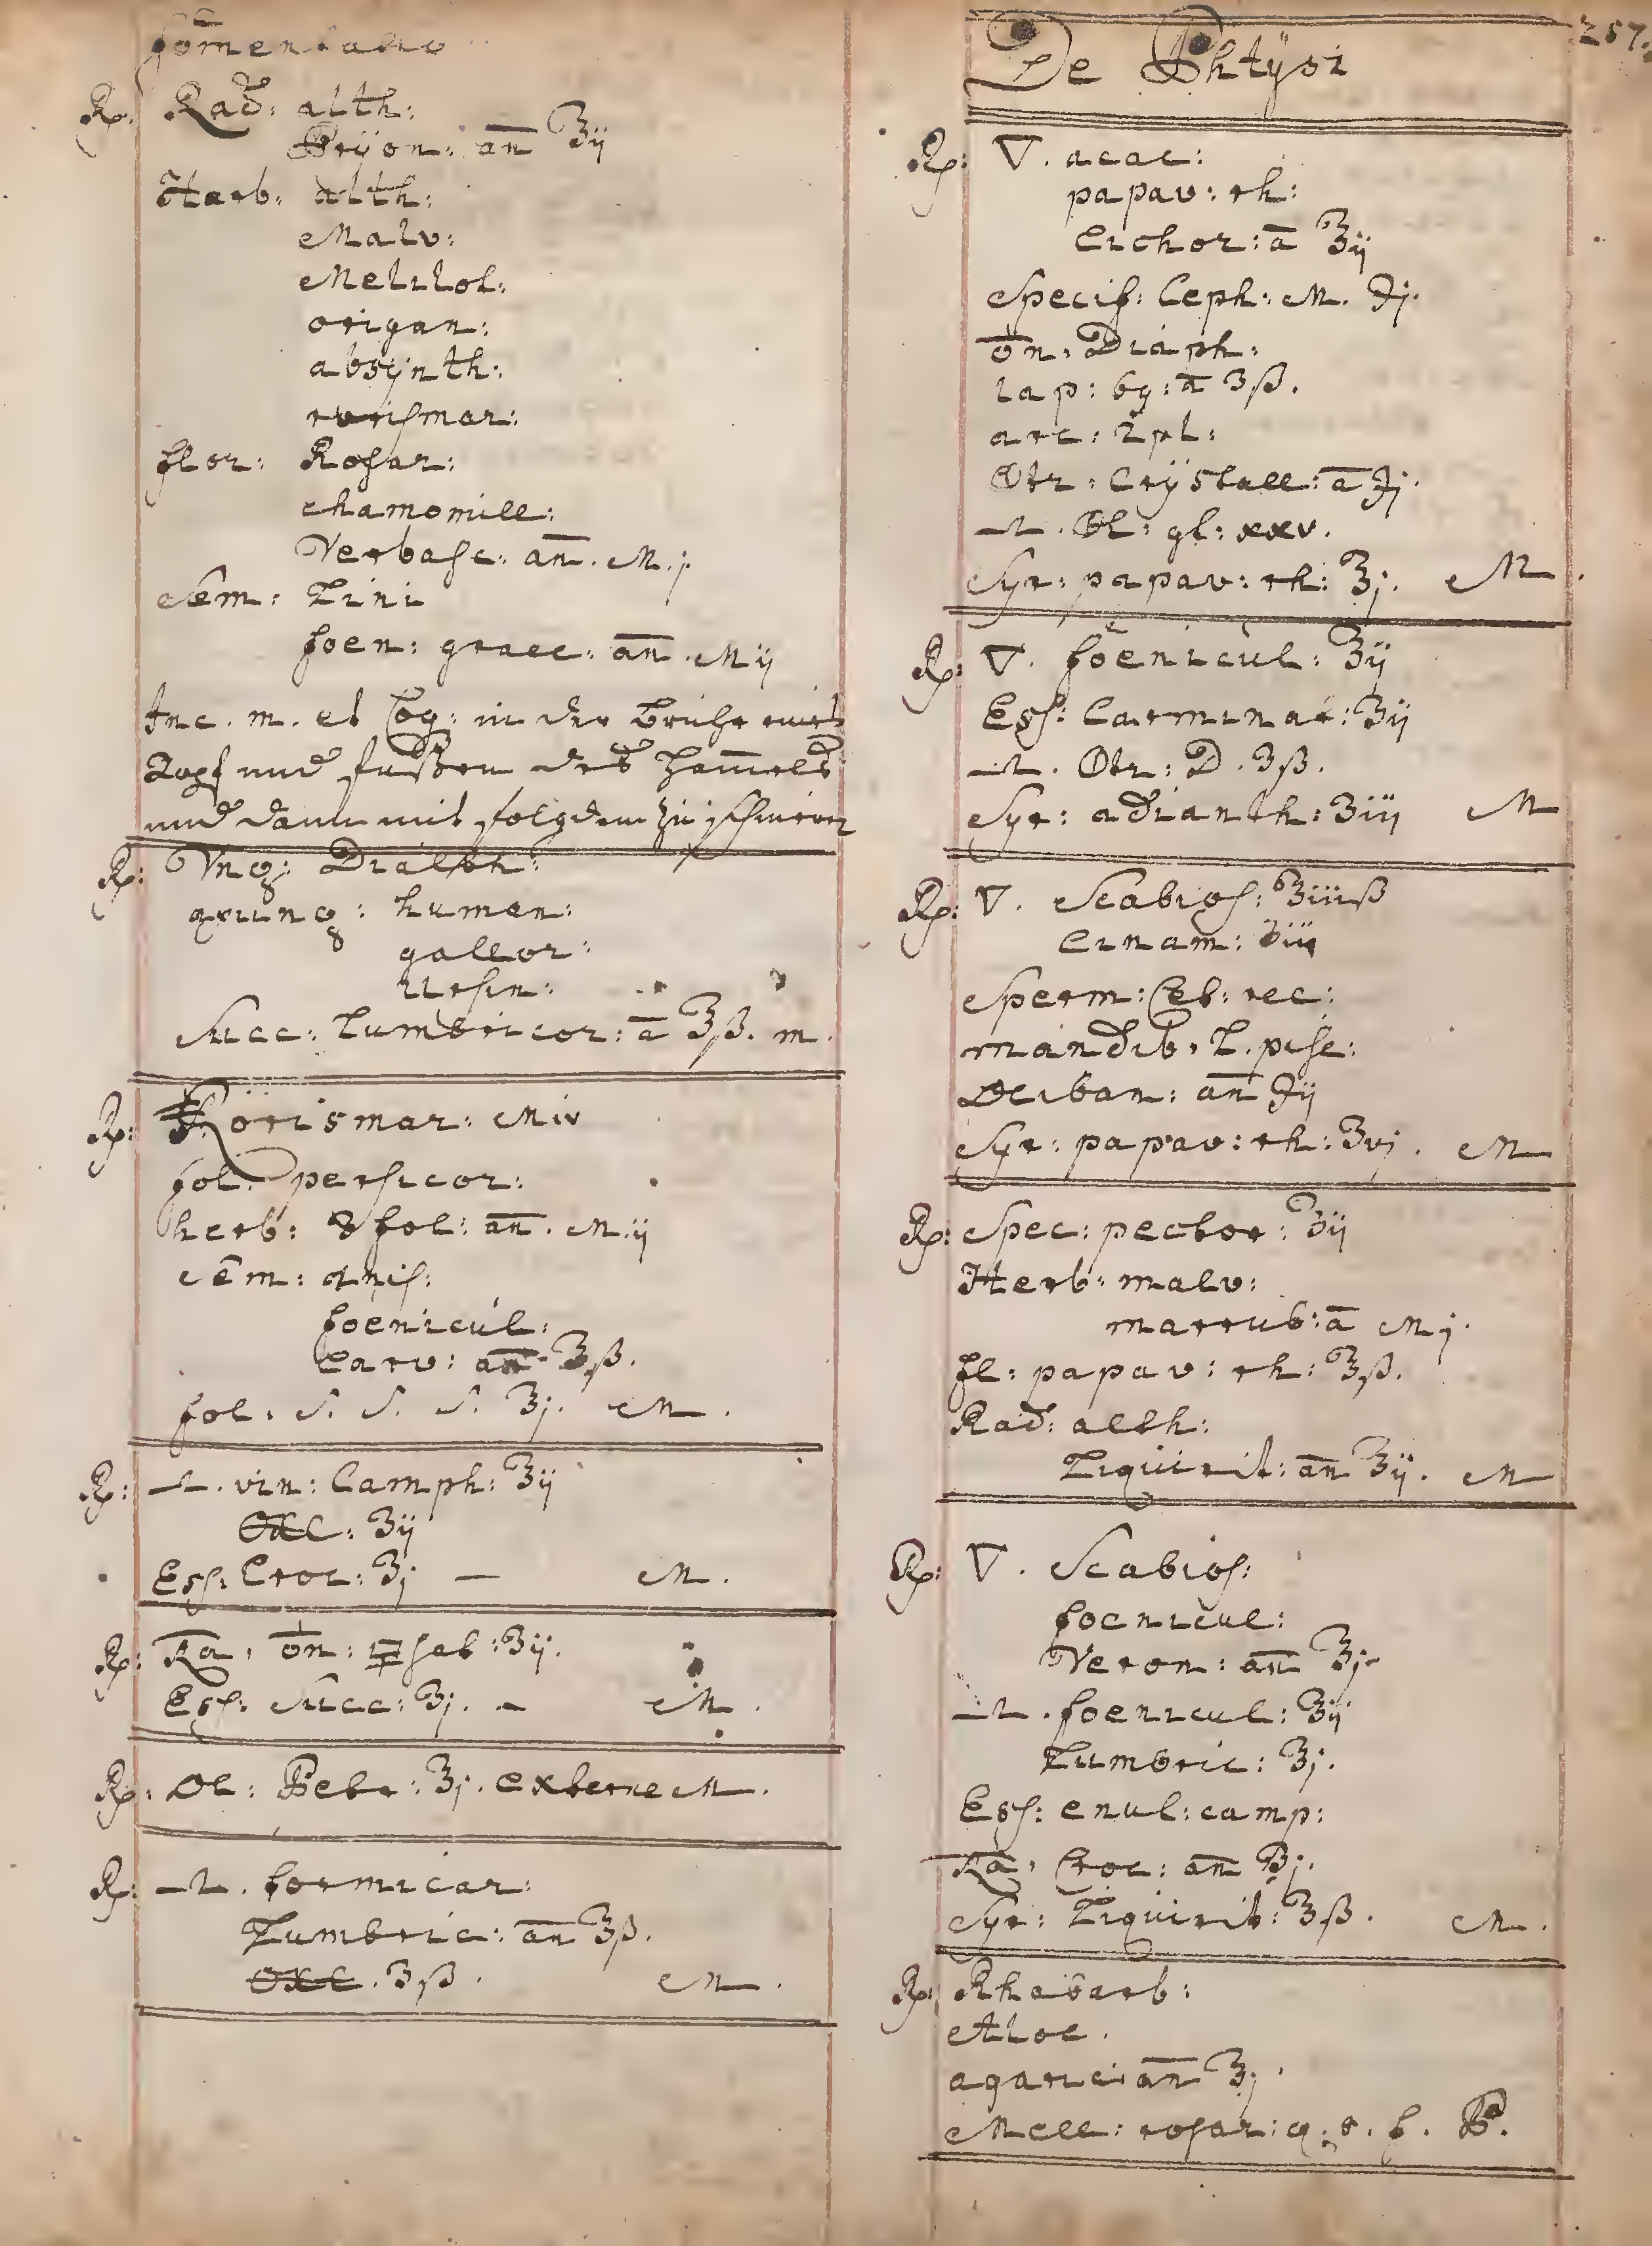 fomentatio
Rp: Rad: alth:
Bryon: an ʒij
Herb: alth:
Malv:
Melilot:
origan:
absynth:
rorismar:
flor: Rosar:
chamomill:
Verbasc: an. M.j
Sem: Lini
foen: graec: an. Mij
Inc. m. et Coq: in der brühe von
Kopf und fußen des Hamels
und dann mit folgdem zu schmieren
Rp: Vng: Dialth:
axung: human:
gallor:
Ursin:
Succ: Lumbricor: a ʒß. m.
Rp: Rorismar: Miv
fol: persicor:
herb: & fol: an. M.ij
sem: anis:
foenicul:
Carv: an ʒß.
fol. S. S. S. ʒj. M.
Rp: vin: Camph: ʒij
C: ʒij
Ess: Croc: ʒj — M.
Rp: ʒij.
Ess: Succ: ʒj. — M.
Rp: Ol: Petr: ʒj. externe M.
Rp: formicar:
Lumbric: an ʒß.
ʒß. M.
257.
De Phtÿsi
Rp: ▽. acac:
papav: rh:
Cichor: a ʒij
Specif: Ceph: M. ℈j.
Diaph:
lap: 69: a ʒß.
arc: 2pl:
Crÿstall: a ℈j.
gt: xxv.
Syr: papav: rh: ʒj. M.
Rp: ▽. foenicul: ʒij
Ess: Carminat: ʒij
D. ʒß.
Syr: adianth: ʒiij M
Rp: ▽. Scabios: ʒiiiß
Cinam: ʒiij
Sperm: Cet: rec:
mandib. L. pisc:
Oliban: an ℈ij
Syr: papav: rh: ʒvj. M
Rp: Spec: pector: ʒij
Herb: malv:
marrub: a Mj.
fl: papav: rh: ʒß.
Rad: alth:
Liquirit: an ʒij. M
Rp: ▽. Scabios:
foenicul:
Veron: an ʒj.
foenicul: ʒij
Lumbric: ʒj.
Ess: enul: camp:
Croc: an ʒj.
Syr: Liquirit: ʒß. M.
Rp: Rhabarb:
Aloe.
agarici an ʒj.
Mell: rosar: q. s. f. B.